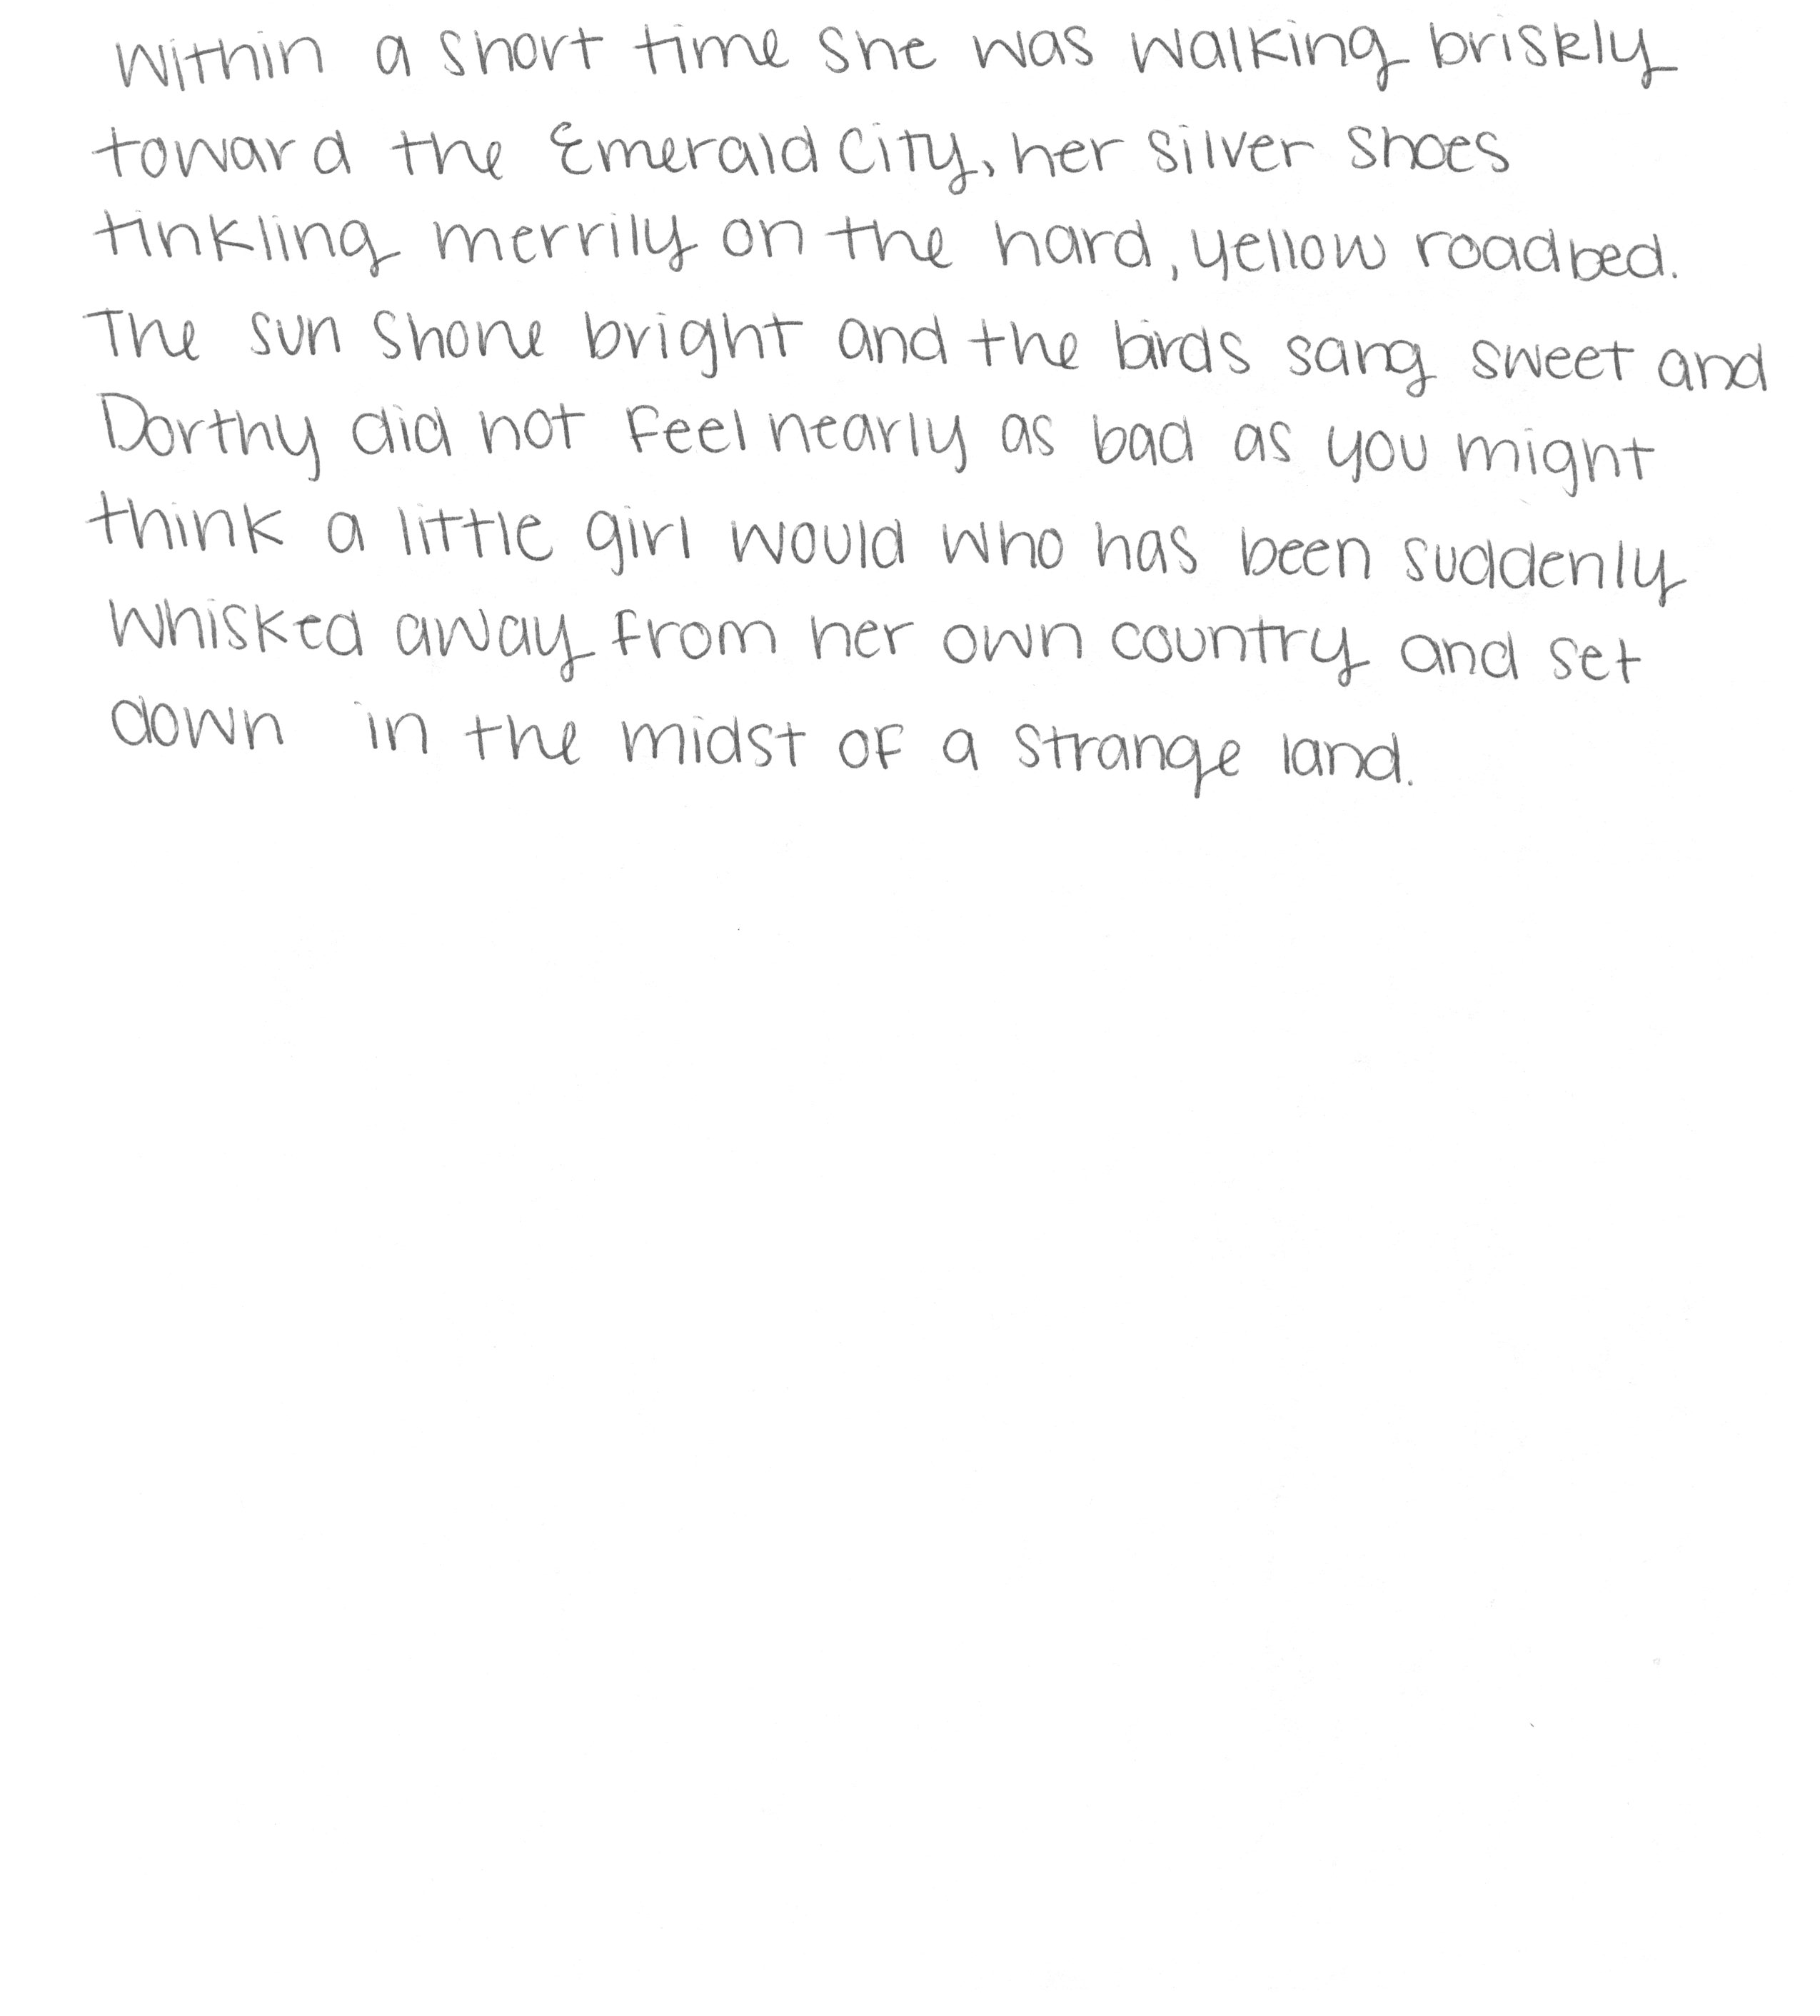 Within a short time she was walking briskly
toward the Emerald City, her silver shoes
tinkling merrily on the hard, yellow roadbed.
The sun shone bright and the birds sang sweet and
Dorthy did not feel nearly as bad as you might
think a little girl would who has been suddenly
whisked away from her own country and set
down in the midst of a strange land.